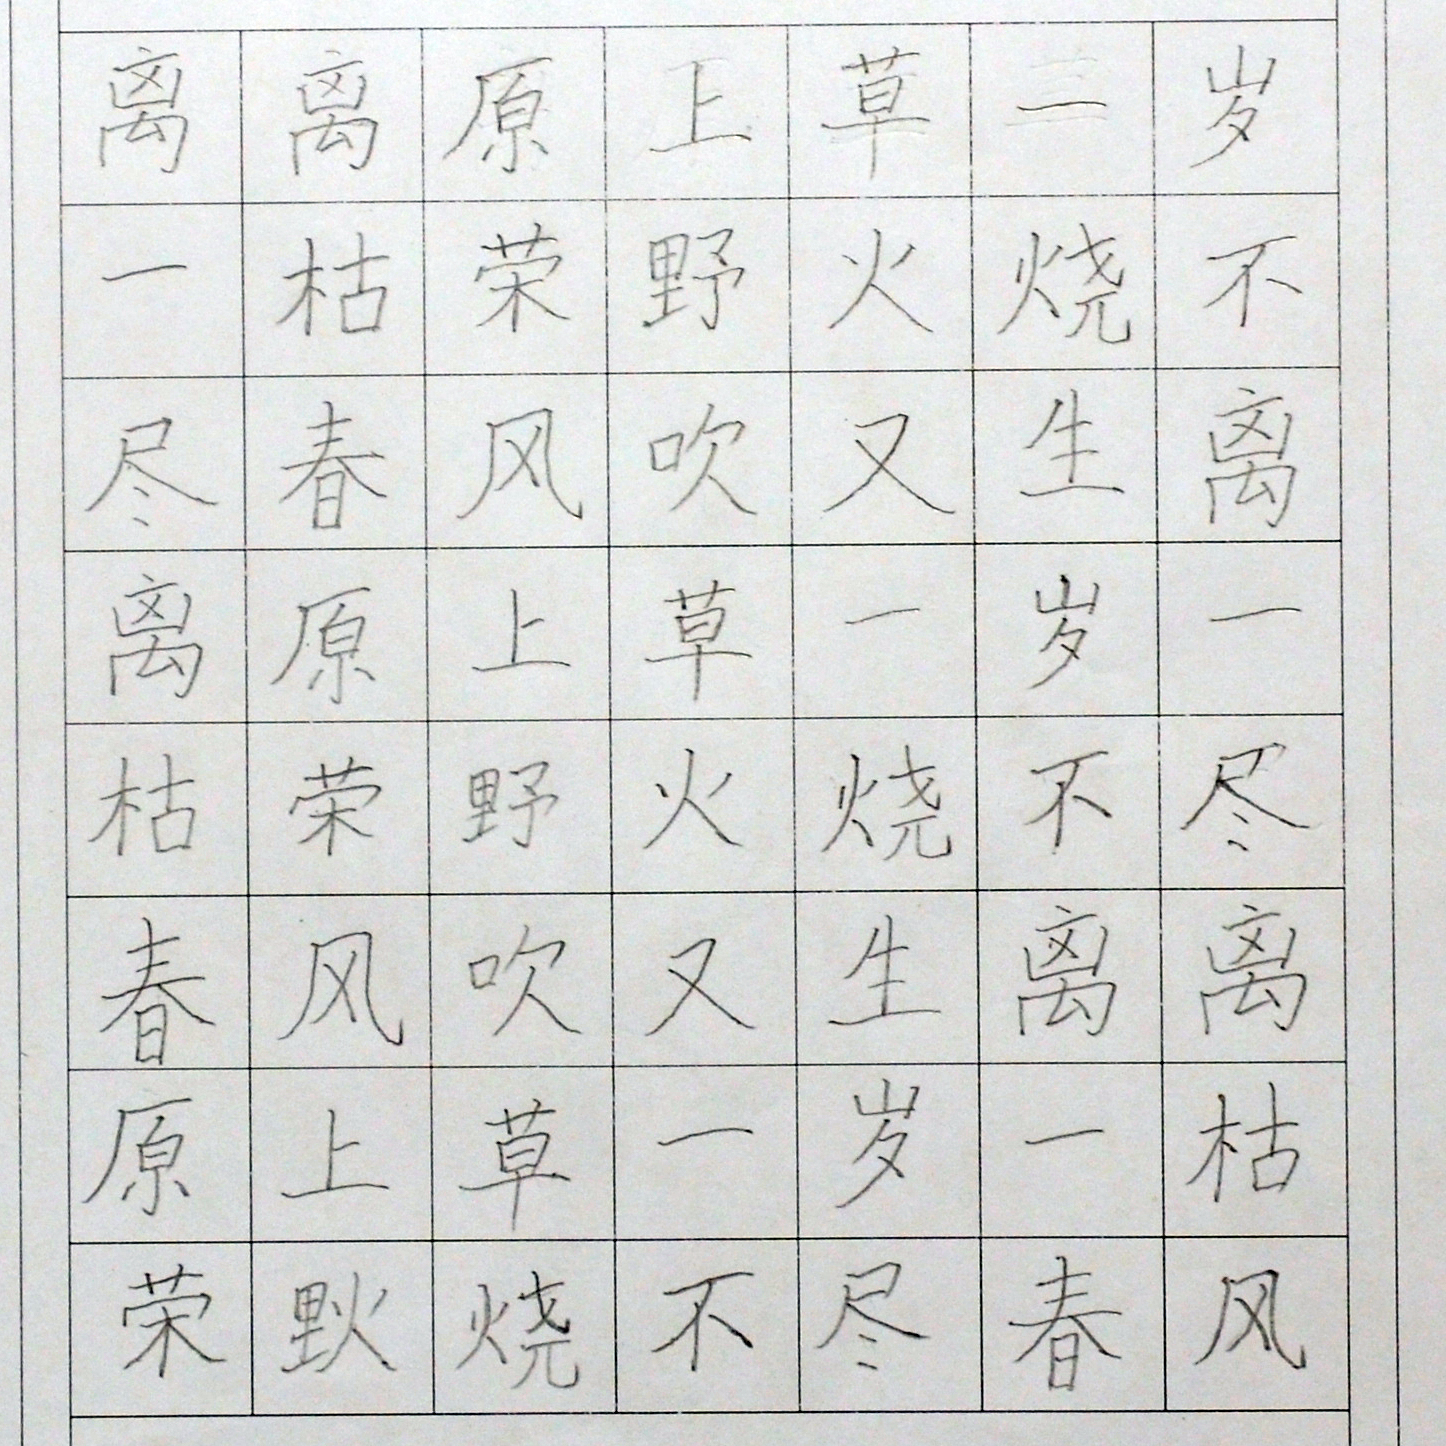 离离原上草一岁
一枯荣野火烧不
尽春风吹又生离
离原上草一岁一
枯荣野火烧不尽
春风吹又生离离
原上草一岁一枯
荣里火烧不尽春风